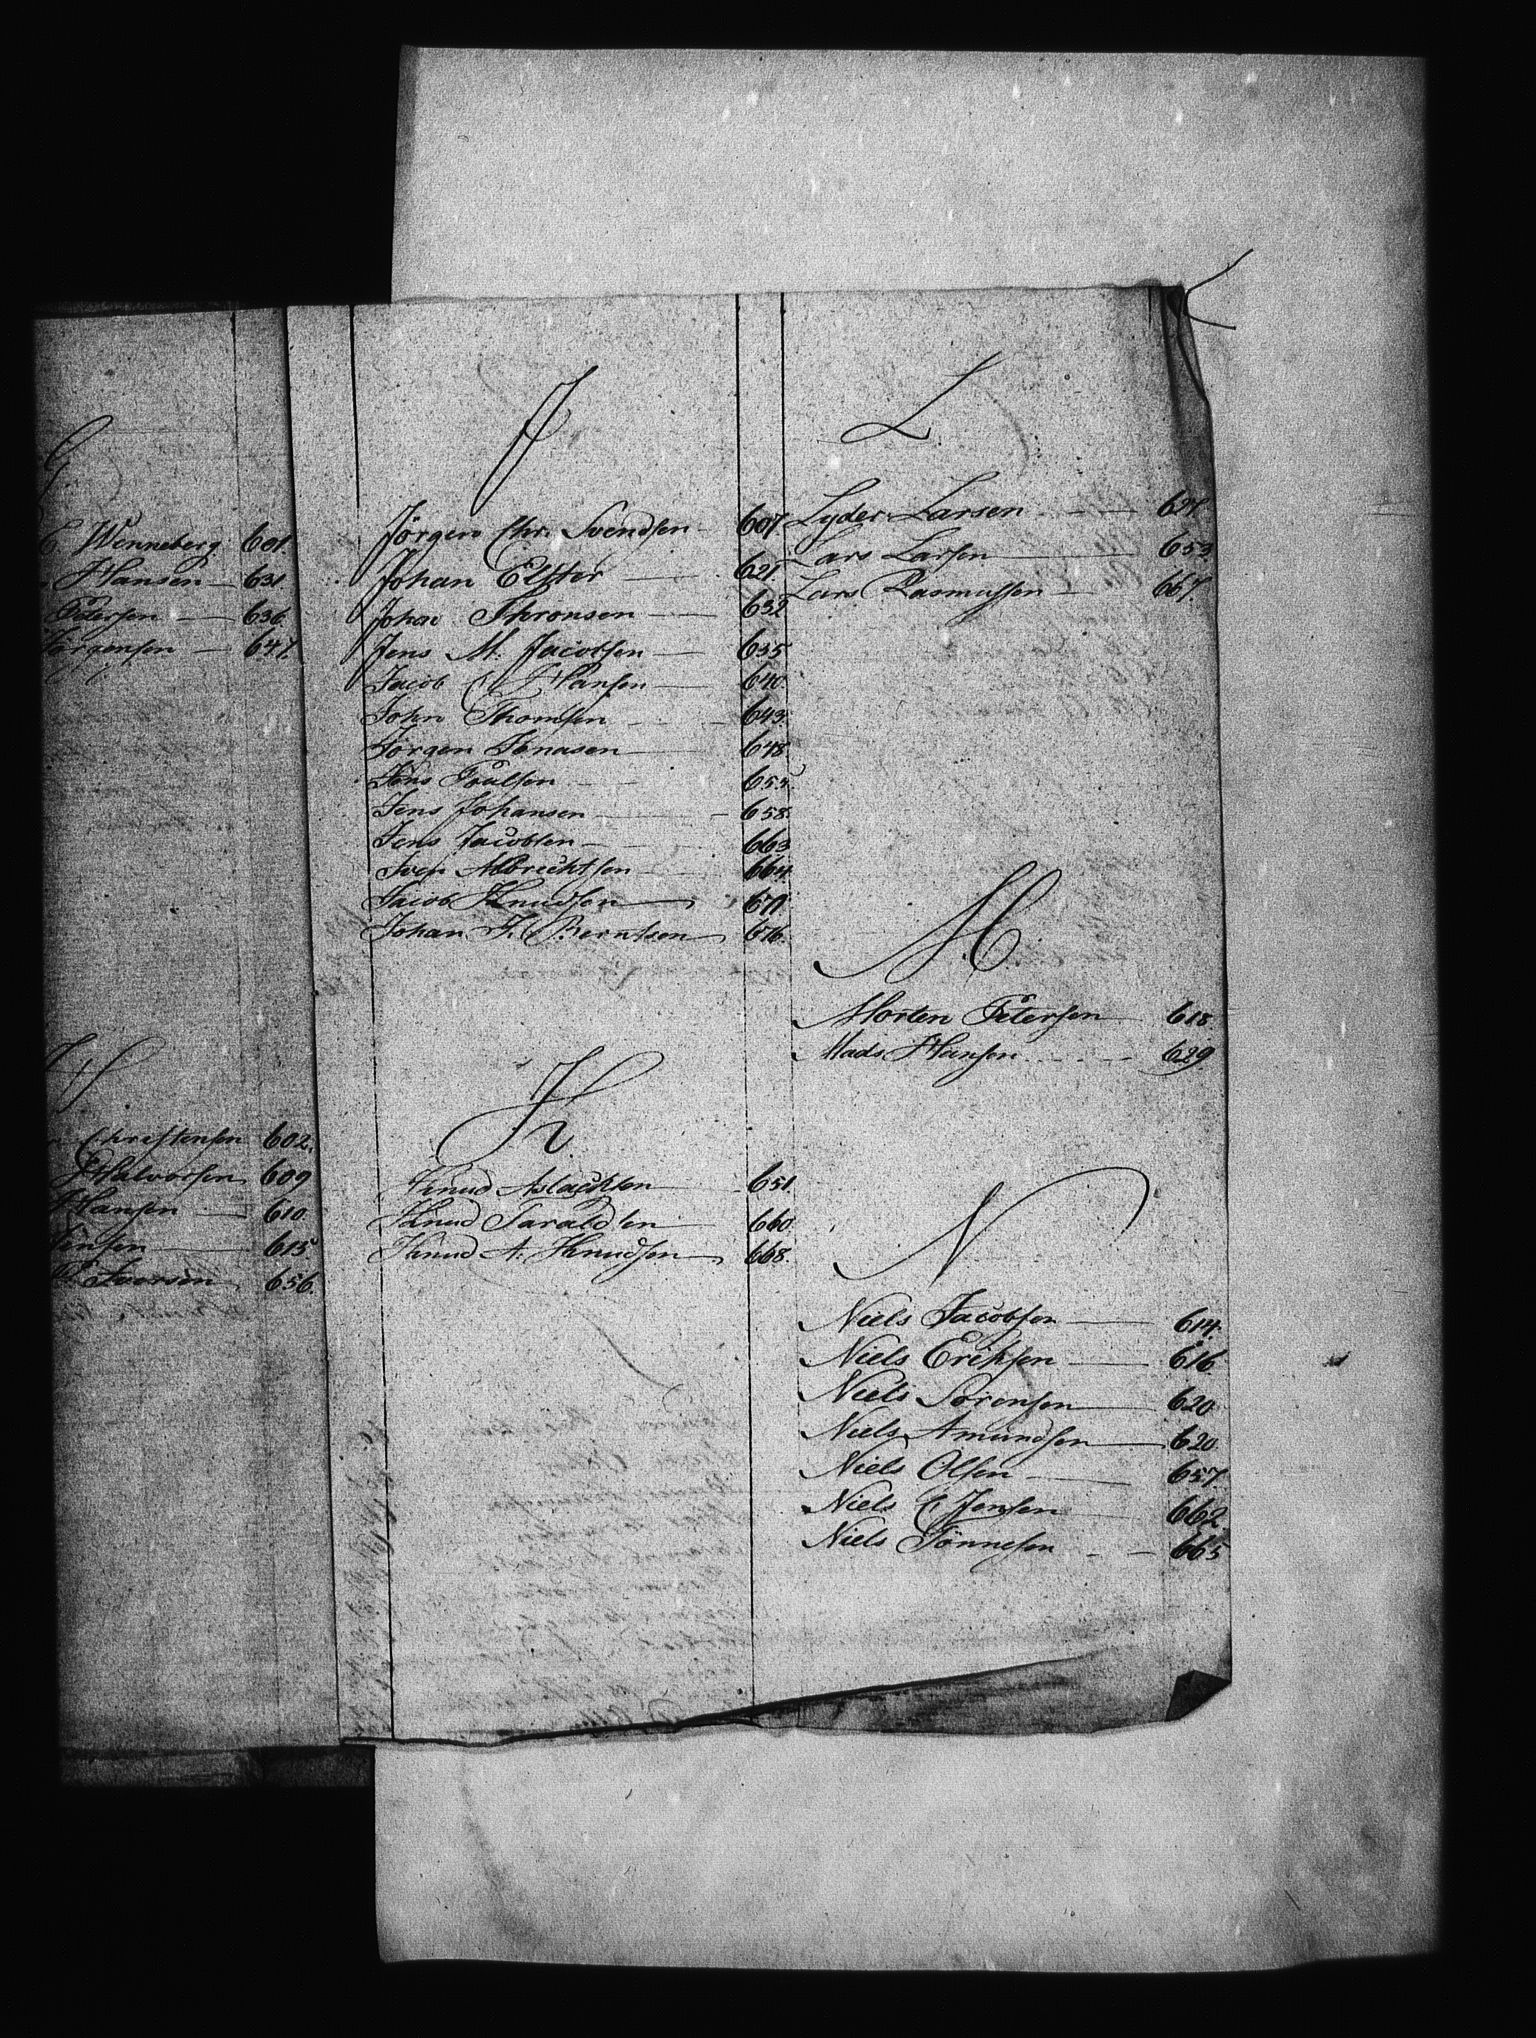 G.
C. Wenneberg 601.
Hansen 631
Petersen 636.
Jörgensen 647.
H
Christensen 602.
Halvorsen 609
Hansen 610.
Jensen 615
Iversen 656.
J
Jörgen Chr. Svendsen 607.
Johan Elster 621.
Johan Thronsen 632
Jens M. Jacobsen 635
Jacob C. Hansen 640.
John Thomsen 643.
Jörgen Jonasen 648
Jens Poulsen
Jens Johansen 658.
Jens Jacobsen 663
Iver Albrechtsen 664.
Jacob Knudsen 671
Johan F. Berntsen 676.
K.
Knud Aslachsen 651
Knud Taraldsen 660
Knud A. Knudsen 668.
L
Lyder Larsen
Lars Larsen 653
Lars Rasmussen 667.
M.
Morten Petersen 618.
Mads Hansen 629.
N
Niels Jacobsen 614.
Niels Eriksen 616.
Niels Sörensen 620
Niels Amundsen 620
Niels Olsen 657.
Niels C. Jensen 662.
Niels Tönnesen 665